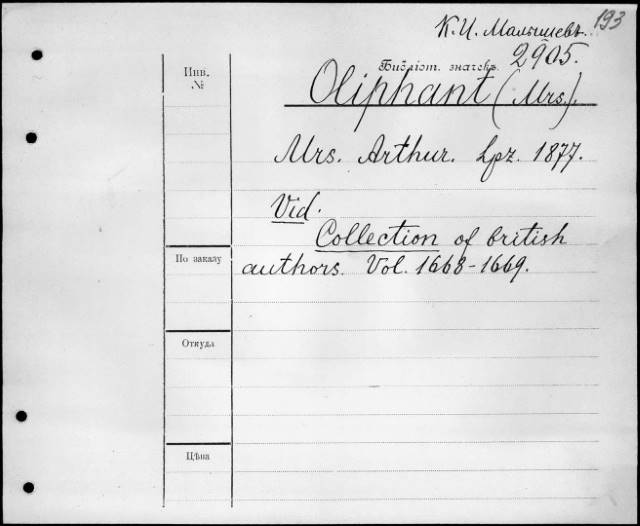 193
К. И. Малышевъ.
Инв.
№
Библіот. значекъ 2905.
Oliphant (Mrs.).
Mrs. Arthur. Lpz. 1877.
Vid.
Collection of british
По заказу
authors. Vol. 1668-1669.
Откуда
Цѣна